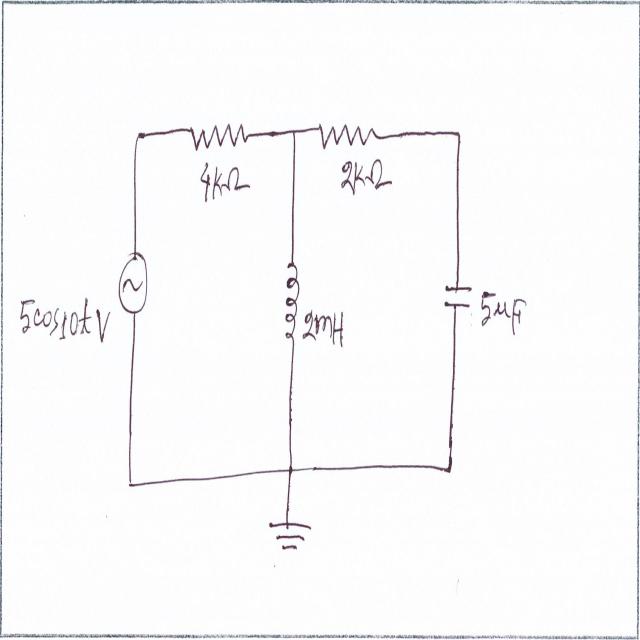 4KΩ
2KΩ
5cos10t V
2mH
5μF